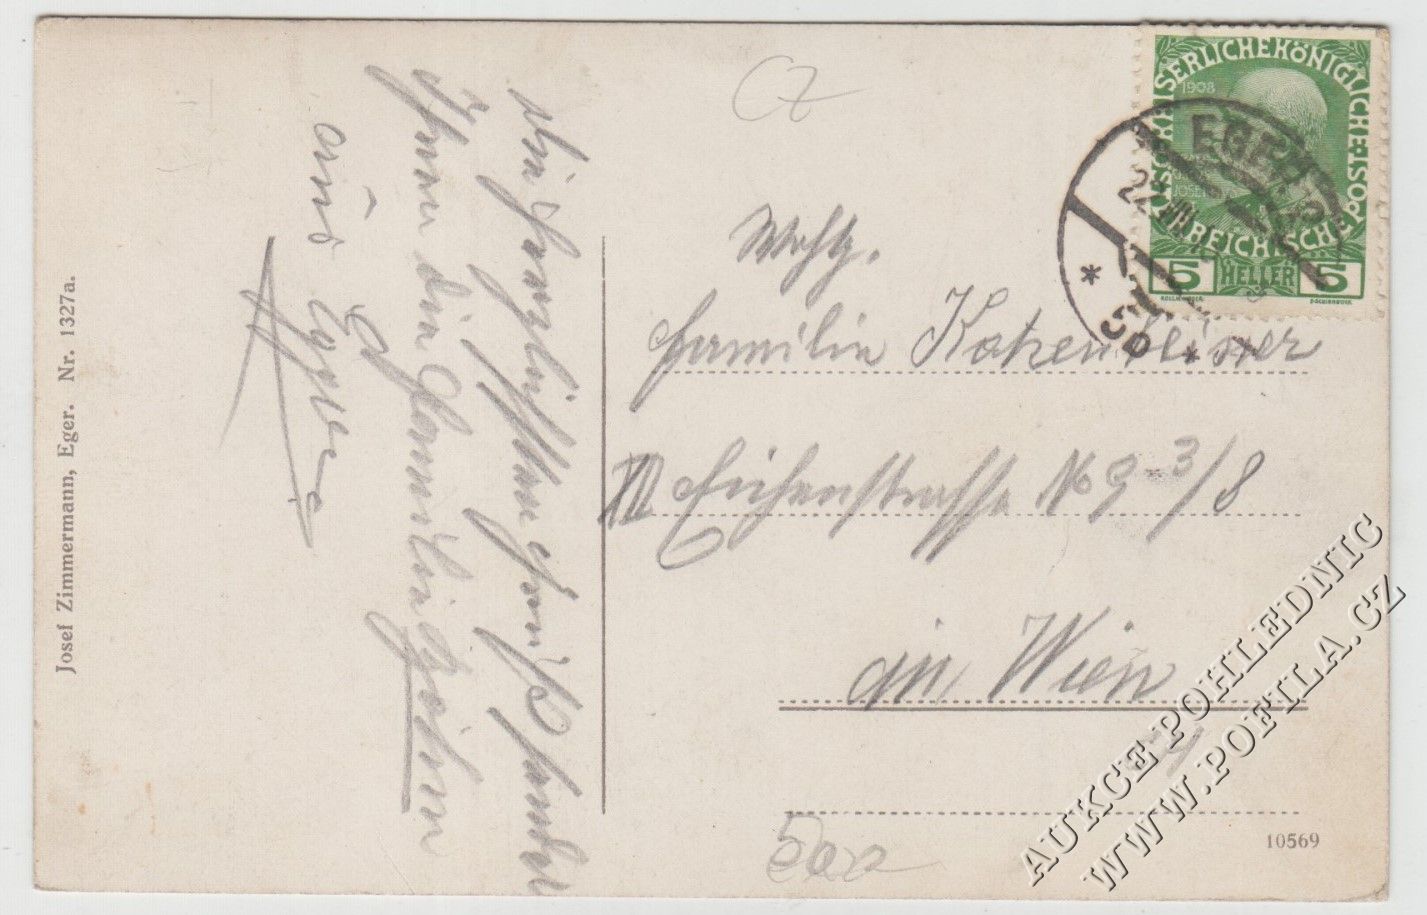 Josef Zimmermann, Eger. Nr. 1327a.
Die herzlichsten Grüße sendet
Ihnen die Familie
aus Eger
CZ
KAISERLICHE KÖNIGLICHE
ÖSTERREICHISCHE POST
1908
5 HELLER 5
EGER
22 VIII
Wohlg.
Familie Katzenbeisser
Eichenstrasse No 9 3/8
in Wien
10569
AUKCE POHLEDNIC
WWW.POFILA.CZ